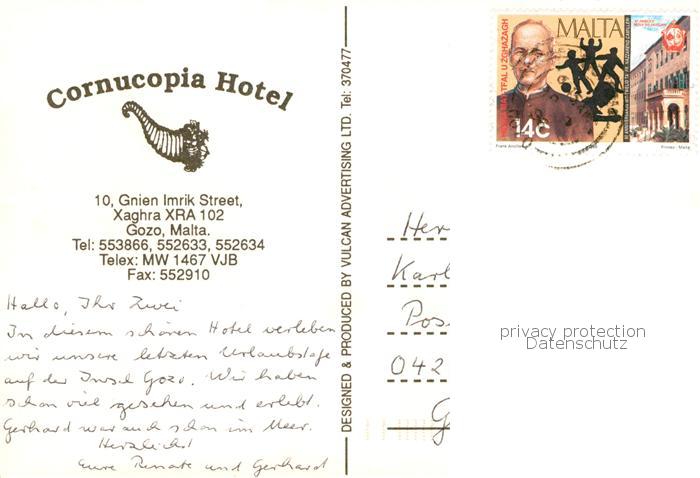 Cornucopia Hotel
10, Gnien Imrik Street,
Xaghra XRA 102
Gozo, Malta.
Tel: 553866, 552633, 552634
Telex: MW 1467 VJB
Fax: 552910
Hallo, Ihr Zwei
In diesem schönen Hotel verleben
wir unsere letzten Urlaubstage
auf der Insel Gozo. Wir haben
schon viel gesehen und erlebt.
Gerhard war auch schon im Meer.
Herzlichst
Eure Renate und Gerhard
DESIGNED & PRODUCED BY VULCAN ADVERTISING LTD. Tel: 370477
MALTA
TFAL U ŻGĦAŻAGĦ
14c
Printex - Malta
Her
Karl
Pos
042
G
privacy protection
Datenschutz